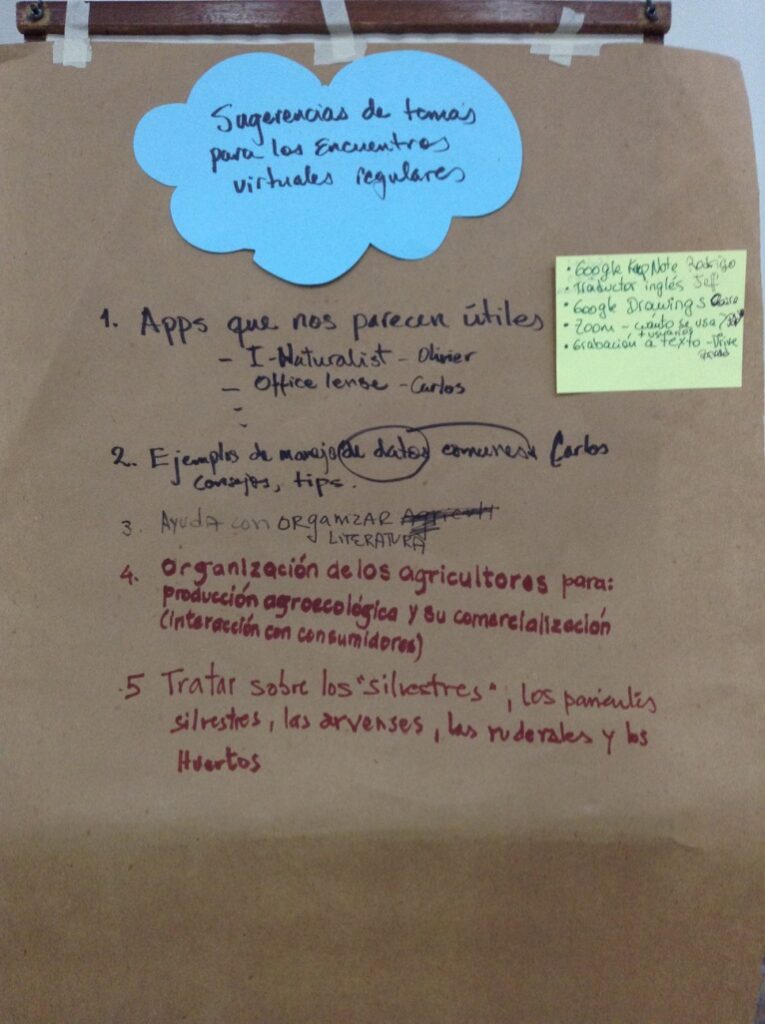 Sugerencias de temas
para los Encuentros
virtuales regulares
1. Apps que nos parecen útiles
- I-Naturalist - Olivier
- Office lense - Carlos
-
• Google Keep Note Rodrigo
• Traductor inglés Jeff
• Google Drawings Claire
• Zoom - cuánto se usa
+ usuarios
• Grabación a texto - Drive
2. Ejemplos de manejo de datos comunes Carlos
consejos, tips.
3. Ayuda con ORGANIZAR
LITERATURA
4. Organización de los agricultores para:
producción agroecológica y su comercialización
(interacción con consumidores)
.5 Tratar sobre los "silvestres", los parientes
silvestres, las arvenses, las ruderales y los
Huertos